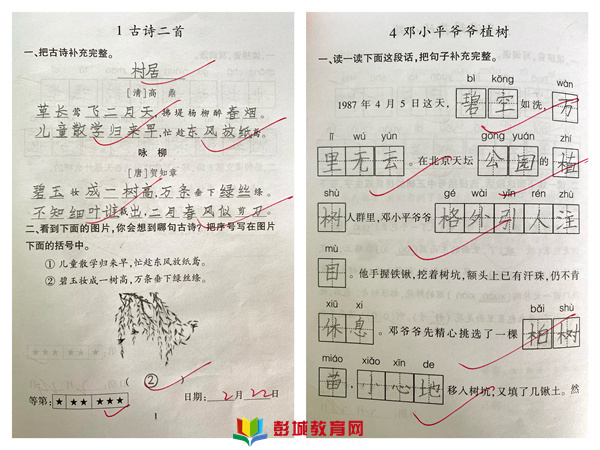 1 古诗二首
一、把古诗补充完整。
村居
[清]高 鼎
草长莺飞二月天,拂堤杨柳醉春烟。
儿童散学归来早,忙趁东风放纸鸢。
咏 柳
[唐]贺知章
碧玉妆成一树高,万条垂下绿丝绦。
不知细叶谁裁出,二月春风似剪刀。
二、看到下面的图片,你会想到哪句古诗?把序号写在图片
下面的括号中。
① 儿童散学归来早,忙趁东风放纸鸢。
② 碧玉妆成一树高,万条垂下绿丝绦。
( ② )
等第: ★ ★★ ★★★ 日期: 2 月 22 日
1
4 邓小平爷爷植树
一、读一读下面这段话,把句子补充完整。
bì kōng wàn
1987 年 4 月 5 日这天, 碧空 如洗, 万
lǐ wú yún gōng yuán zhí
里无云 。在北京天坛 公园 的 植
shù gé wài yǐn rén zhù
树 人群里,邓小平爷爷 格外引人注
mù
目 。他手握铁锹,挖着树坑,额头上已有汗珠,仍不肯
xiū xi bǎi shù
休息 。邓爷爷先精心挑选了一棵 柏树
miáo xiǎo xīn de
苗 , 小心地 移入树坑,又填了几锹土。然
彭城教育网